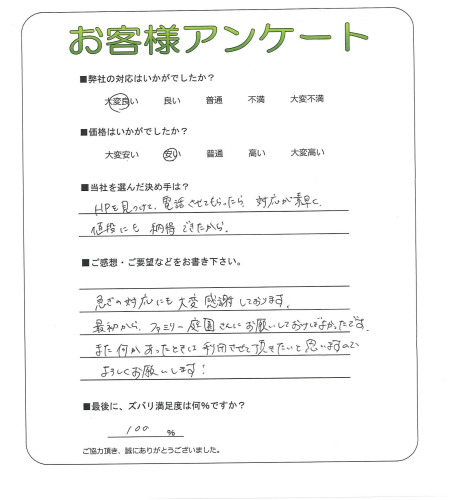 お客様アンケート
■弊社の対応はいかがでしたか？
大変良い 良い 普通 不満 大変不満
■価格はいかがでしたか？
大変安い 安い 普通 高い 大変高い
■当社を選んだ決め手は？
HPを見つけて、電話させてもらったら 対応が素早く、
値段にも 納得できたから。
■ご感想・ご要望などをお書き下さい。
急ぎの対応にも大変感謝しております。
最初から、ファミリー庭園さんにお願いしておけばよかったです。
また何かあったときは利用させて頂きたいと思いますので
よろしくお願いします！
■最後に、ズバリ満足度は何％ですか？
100 ％
ご協力頂き、誠にありがとうございました。